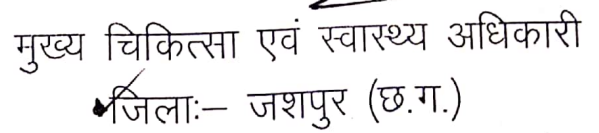 मुख्य चिकित्सा एवं स्वास्थ्य अधिकारी
जिलाः– जशपुर (छ.ग.)